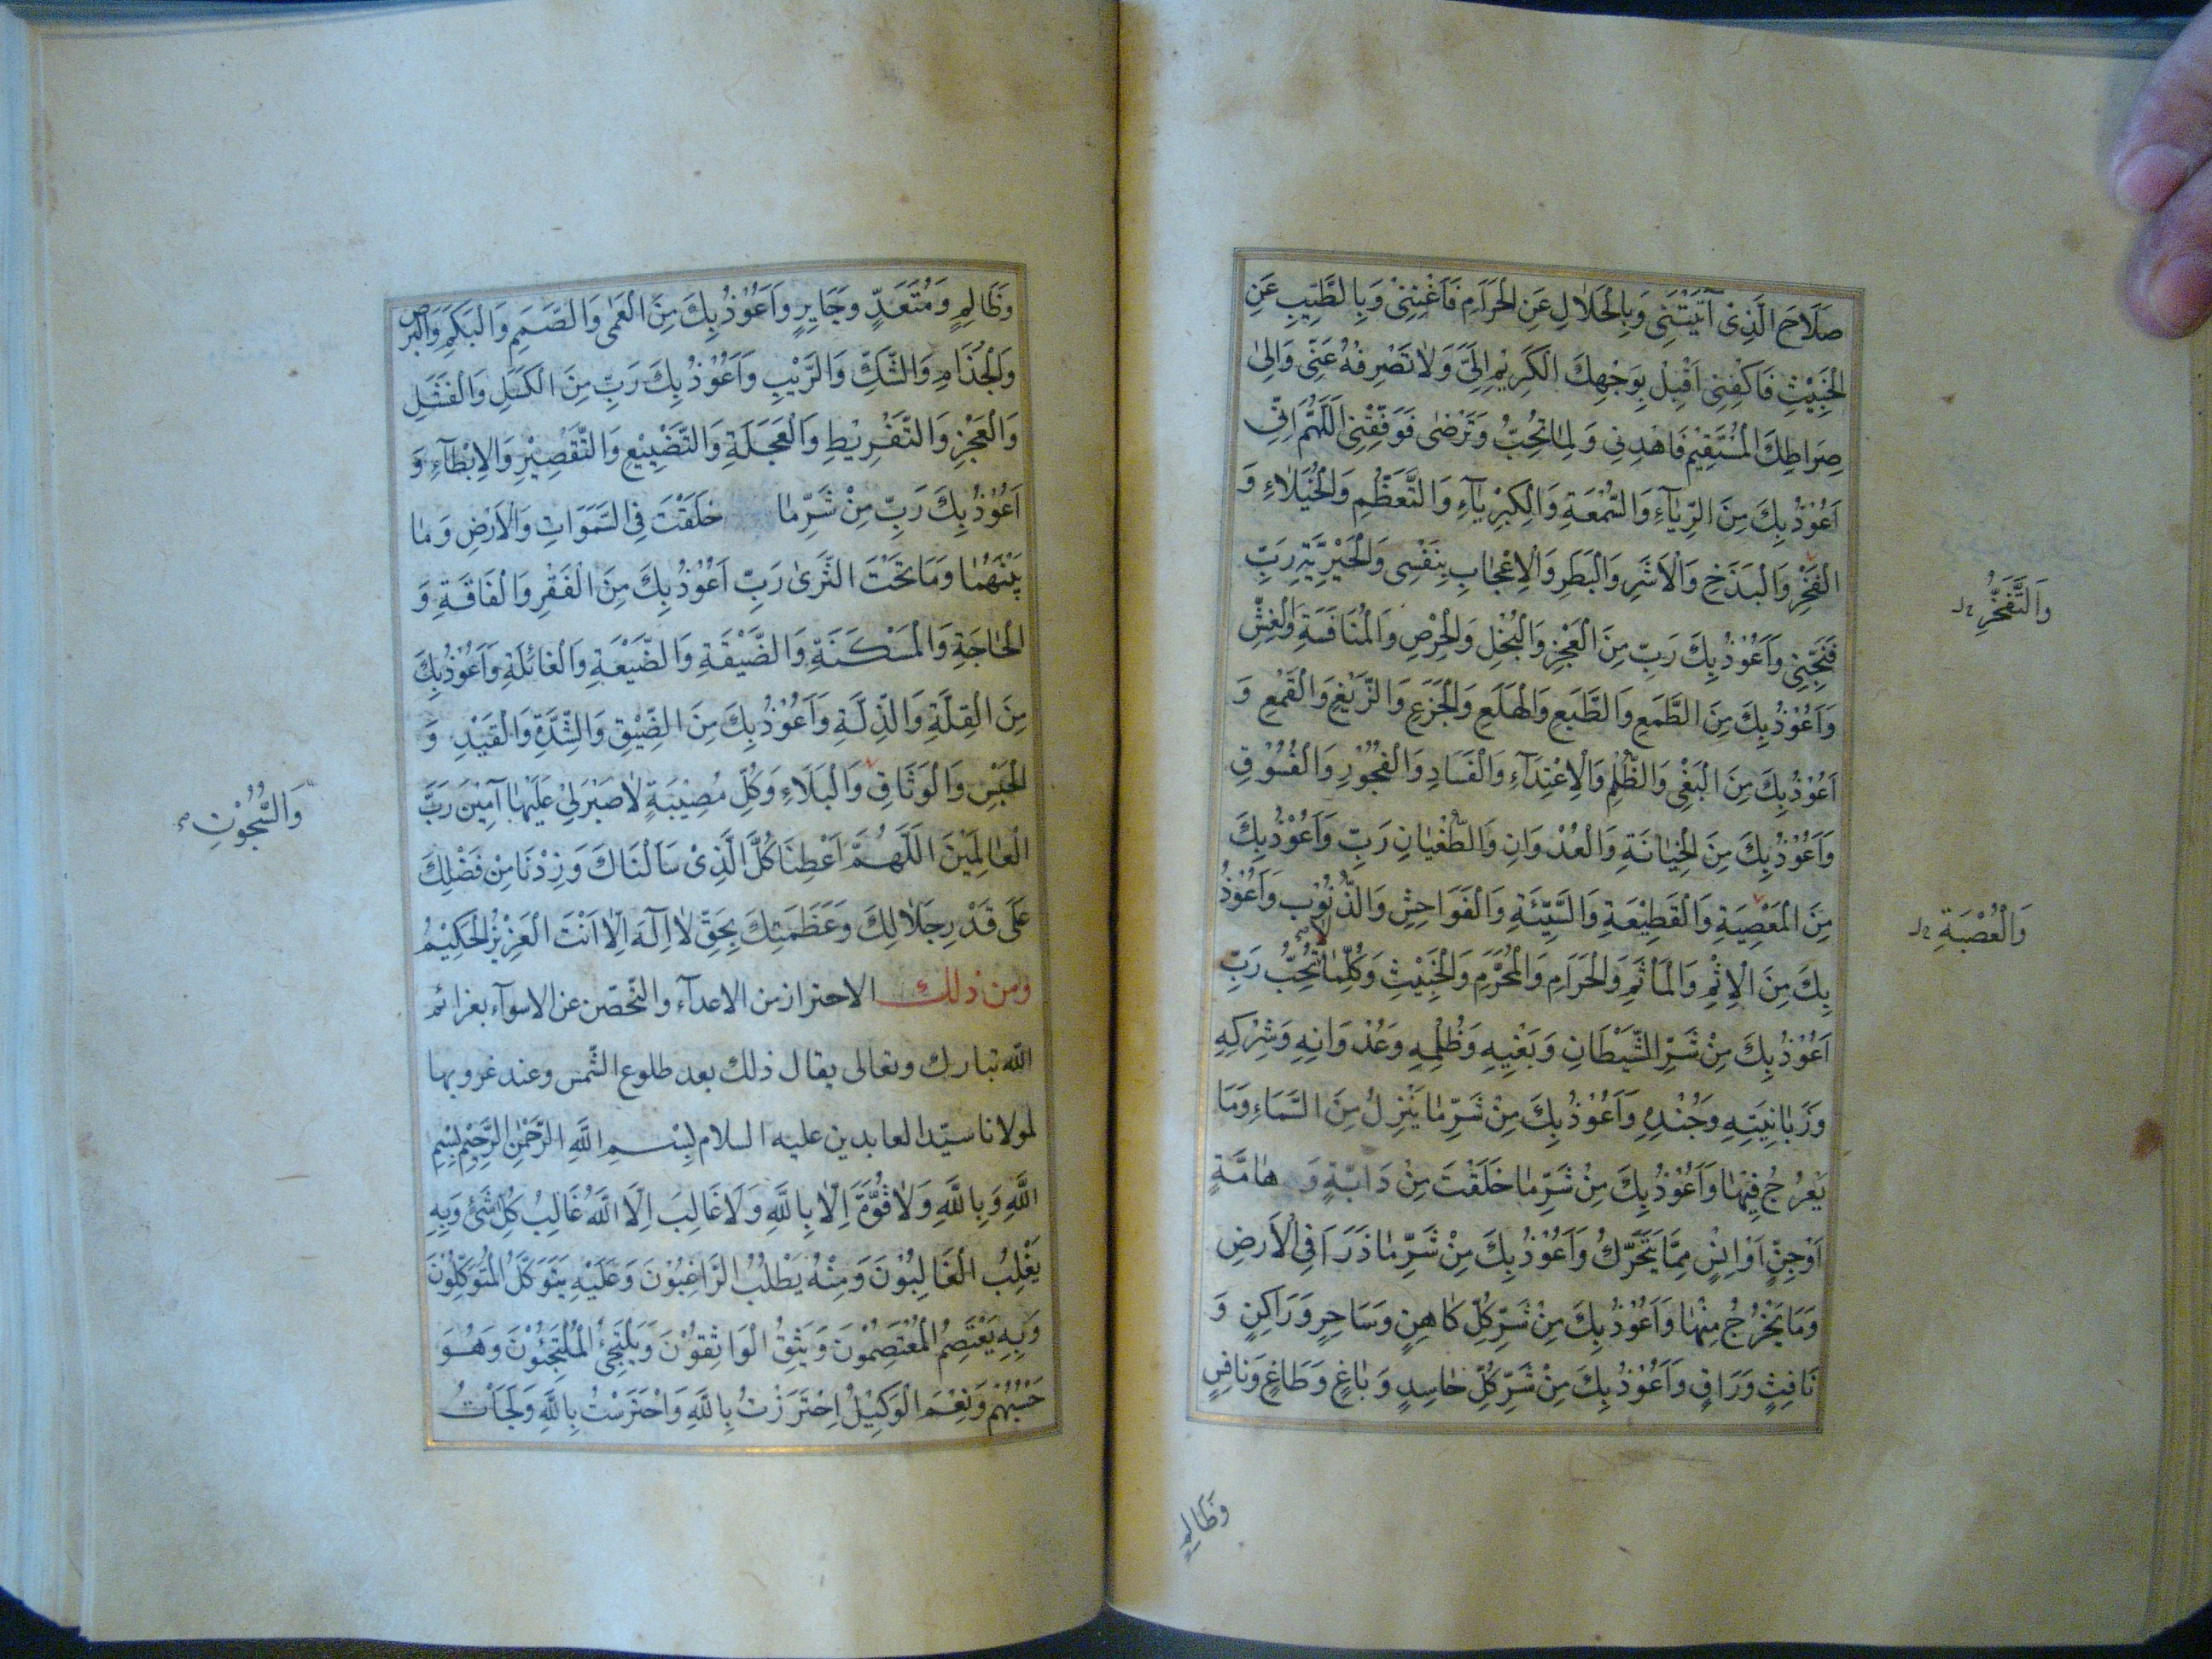 صَلَاحَ الَّذِىْ آتَيْتَنِى وَبِالْحَلَالِ عَنِ الْحَرَامِ فَاَغْنِنِىْ وَبِالطَّيِّبِ عَنِ
الْخَبِيْثِ فَاكْفِنِى اَقْبِلْ بِوَجْهِكَ الْكَرِيْمِ اِلَىَّ وَلَا تَصْرِفْهُ عَنِّى وَاِلىٰ
صِرَاطِكَ الْمُسْتَقِيْمِ فَاهْدِنِى وَلِمَا تُحِبُّ وَتَرْضىٰ فَوَفِّقْنِى اَللّٰهُمَّ اِنِّى
اَعُوْذُ بِكَ مِنَ الرِّيَآءِ وَالسُّمْعَةِ وَالْكِبْرِيَآءِ وَالتَّعَظُّمِ وَالْخُيَلَاءِ وَ
الْفَخْرِ وَالْبَذَخِ وَالْاَشَرِ وَالْبَطَرِ وَالْاِعْجَابِ بِنَفْسِى وَالْجَبْرِيَّةِ رَبِّ
وَالتَّفَخُّرِ خل
فَنَجِّنِى وَاَعُوْذُ بِكَ رَبِّ مِنَ الْعَجْزِ وَالْبُخْلِ وَالْحِرْصِ وَالْمُنَافَسَةِ وَالْغِشِّ
وَاَعُوْذُ بِكَ مِنَ الطَّمَعِ وَالطَّبَعِ وَالْهَلَعِ وَالْجَزَعِ وَالزَّيْغِ وَالْقَمْعِ وَ
اَعُوْذُ بِكَ مِنَ الْبَغْىِ وَالظُّلْمِ وَالْاِعْتِدَآءِ وَالْفَسَادِ وَالْفُجُوْرِ وَالْفُسُوْقِ
وَاَعُوْذُ بِكَ مِنَ الْخِيَانَةِ وَالْعُدْوَانِ وَالطُّغْيَانِ رَبِّ وَاَعُوْذُ بِكَ
مِنَ الْمَعْصِيَةِ وَالْقَطِيْعَةِ وَالسَّيِّئَةِ وَالْفَوَاحِشِ وَالذُّنُوْبِ وَاَعُوْذُ
وَالْعُصْبَةِ خل
بِكَ مِنَ الْاِثْمِ وَالْمَاْثَمِ وَالْحَرَامِ وَالْمُحَرَّمِ وَالْخَبِيْثِ وَكُلِّمَا لا تُحِبُّ رَبِّ
اَعُوْذُ بِكَ مِنْ شَرِّ الشَّيْطَانِ وَبَغْيِهِ وَظُلْمِهِ وَعُدْوَانِهِ وَشِرْكِهِ
وَزَبَانِيَتِهِ وَجُنْدِهِ وَاَعُوْذُ بِكَ مِنْ شَرِّ مَا يَنْزِلُ مِنَ السَّمَاءِ وَمَا
يَعْرُجُ فِيْهَا وَاَعُوْذُ بِكَ مِنْ شَرِّ مَا خَلَقْتَ مِنْ دَابَّةٍ وَ هَامَّةٍ
اَوْ جِنٍّ اَوْ اِنْسٍ مِمَّا يَتَحَرَّكُ وَاَعُوْذُ بِكَ مِنْ شَرِّ مَا ذَرَاَ فِى الْاَرْضِ
وَمَا يَخْرُجُ مِنْهَا وَاَعُوْذُ بِكَ مِنْ شَرِّ كُلِّ كَاهِنٍ وَسَاحِرٍ وَرَاكِنٍ وَ
نَافِثٍ وَرَاقٍ وَاَعُوْذُ بِكَ مِنْ شَرِّ كُلِّ حَاسِدٍ وَبَاغٍ وَطَاغٍ وَنَافِسٍ
وَظَالِمٍ
وَظَالِمٍ وَمُتَعَدٍّ وَجَايِرٍ وَاَعُوْذُ بِكَ مِنَ الْعَمٰى وَالصَّمَمِ وَالْبَكَمِ وَالْبَرَصِ
وَالْجُذَامِ وَالشَّكِّ وَالرَّيْبِ وَاَعُوْذُ بِكَ رَبِّ مِنَ الْكَسَلِ وَالْفَشَلِ
وَالْعَجْزِ وَالتَّفْرِيْطِ وَالْعَجَلَةِ وَالتَّضْيِيْعِ وَالتَّقْصِيْرِ وَالْاِبْطَآءِ وَ
اَعُوْذُ بِكَ رَبِّ مِنْ شَرِّ مَا خَلَقْتَ فِى السَّمٰوَاتِ وَالْاَرْضِ وَمَا
بَيْنَهُمَا وَمَا تَحْتَ الثَّرىٰ رَبِّ اَعُوْذُ بِكَ مِنَ الْفَقْرِ وَالْفَاقَةِ وَ
الْحَاجَةِ وَالْمَسْكَنَةِ وَالضَّيْقَةِ وَالضَّيْعَةِ وَالْغَائِلَةِ وَاَعُوْذُ بِكَ
مِنَ الْقِلَّةِ وَالذِّلَّةِ وَاَعُوْذُ بِكَ مِنَ الضِّيْقِ وَالشِّدَّةِ وَالْقَيْدِ وَ
الْحَبْسِ وَالْوَثَاقِ وَالْبَلَاءِ وَكُلِّ مُصِيْبَةٍ لَا صَبْرَ لِىْ عَلَيْهَا آمِيْنَ رَبَّ
وَالسُّجُوْنِ
الْعَالَمِيْنَ اَللّٰهُمَّ اَعْطِنَا كُلَّ الَّذِىْ سَاَلْنَاكَ وَزِدْنَا مِنْ فَضْلِكَ
عَلىٰ قَدْرِ جَلَالِكَ وَعَظَمَتِكَ بِحَقِّ لَا اِلٰهَ اِلَّا اَنْتَ الْعَزِيْزُ الْحَكِيْمُ
ومن ذلك الاحتراز من الاعدآء والتحصّن عن الاسوآء بعزائم
الله تبارك وتعالى يقال ذلك بعد طلوع الشّمس وعند غروبها
لمولانا سيّد العابدين عليه السلام بِسْمِ اللّٰهِ الرَّحْمٰنِ الرَّحِيْمِ بِسْمِ
اللّٰهِ وَبِاللّٰهِ وَلَا قُوَّةَ اِلَّا بِاللّٰهِ وَلَا غَالِبَ اِلَّا اللّٰهُ غَالِبُ كُلِّ شَئٍ وَبِهِ
يَغْلِبُ الْغَالِبُوْنَ وَمِنْهُ يَطْلُبُ الرَّاغِبُوْنَ وَعَلَيْهِ يَتَوَكَّلُ الْمُتَوَكِّلُوْنَ
وَبِهِ يَعْتَصِمُ الْمُعْتَصِمُوْنَ وَيَثِقُ الْوَاثِقُوْنَ وَيَلْتَجِئُ الْمُلْتَجِئُوْنَ وَهُوَ
حَسْبُهُمْ وَنِعْمَ الْوَكِيْلُ اِحْتَرَزْتُ بِاللّٰهِ وَاحْتَرَسْتُ بِاللّٰهِ وَلَجَاْتُ